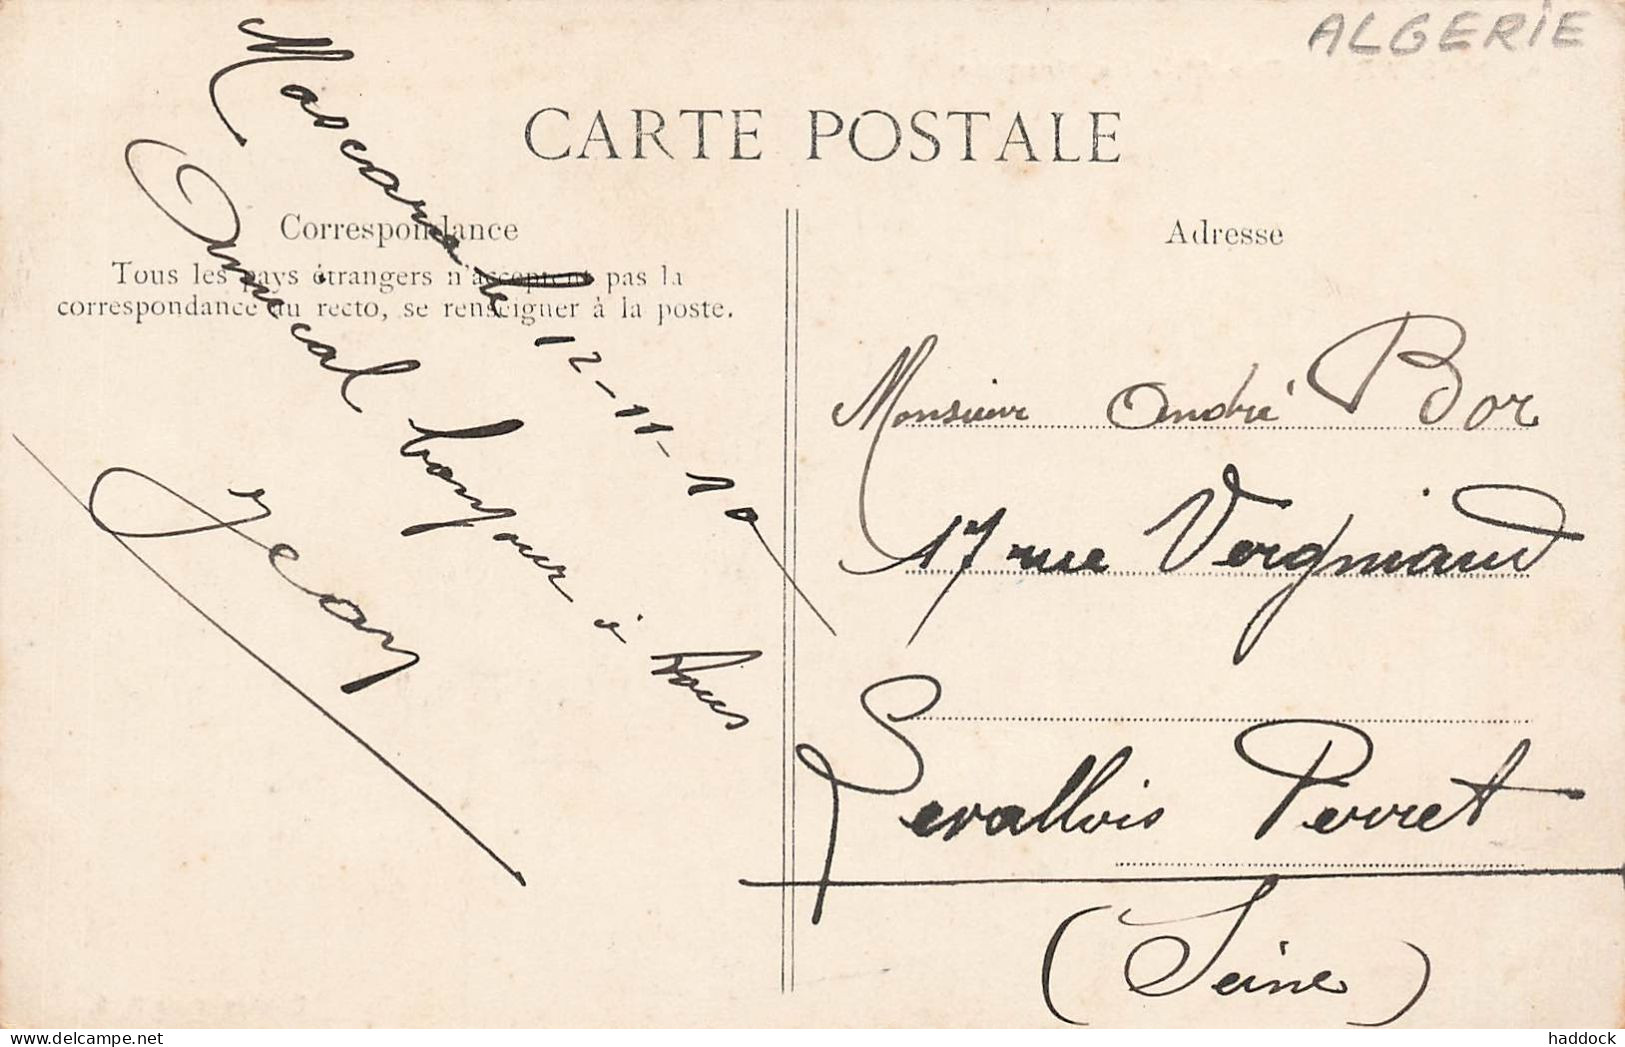 ALGERIE
CARTE POSTALE
Correspondance
Tous les pays étrangers n'acceptent pas la
correspondance au recto, se renseigner à la poste.
Mascara le 12-11-10
Amical bonjour à tous
Jean
Adresse
Monsieur André Bor
17 rue Vergniaud
Levallois Perret
(Seine)
haddock